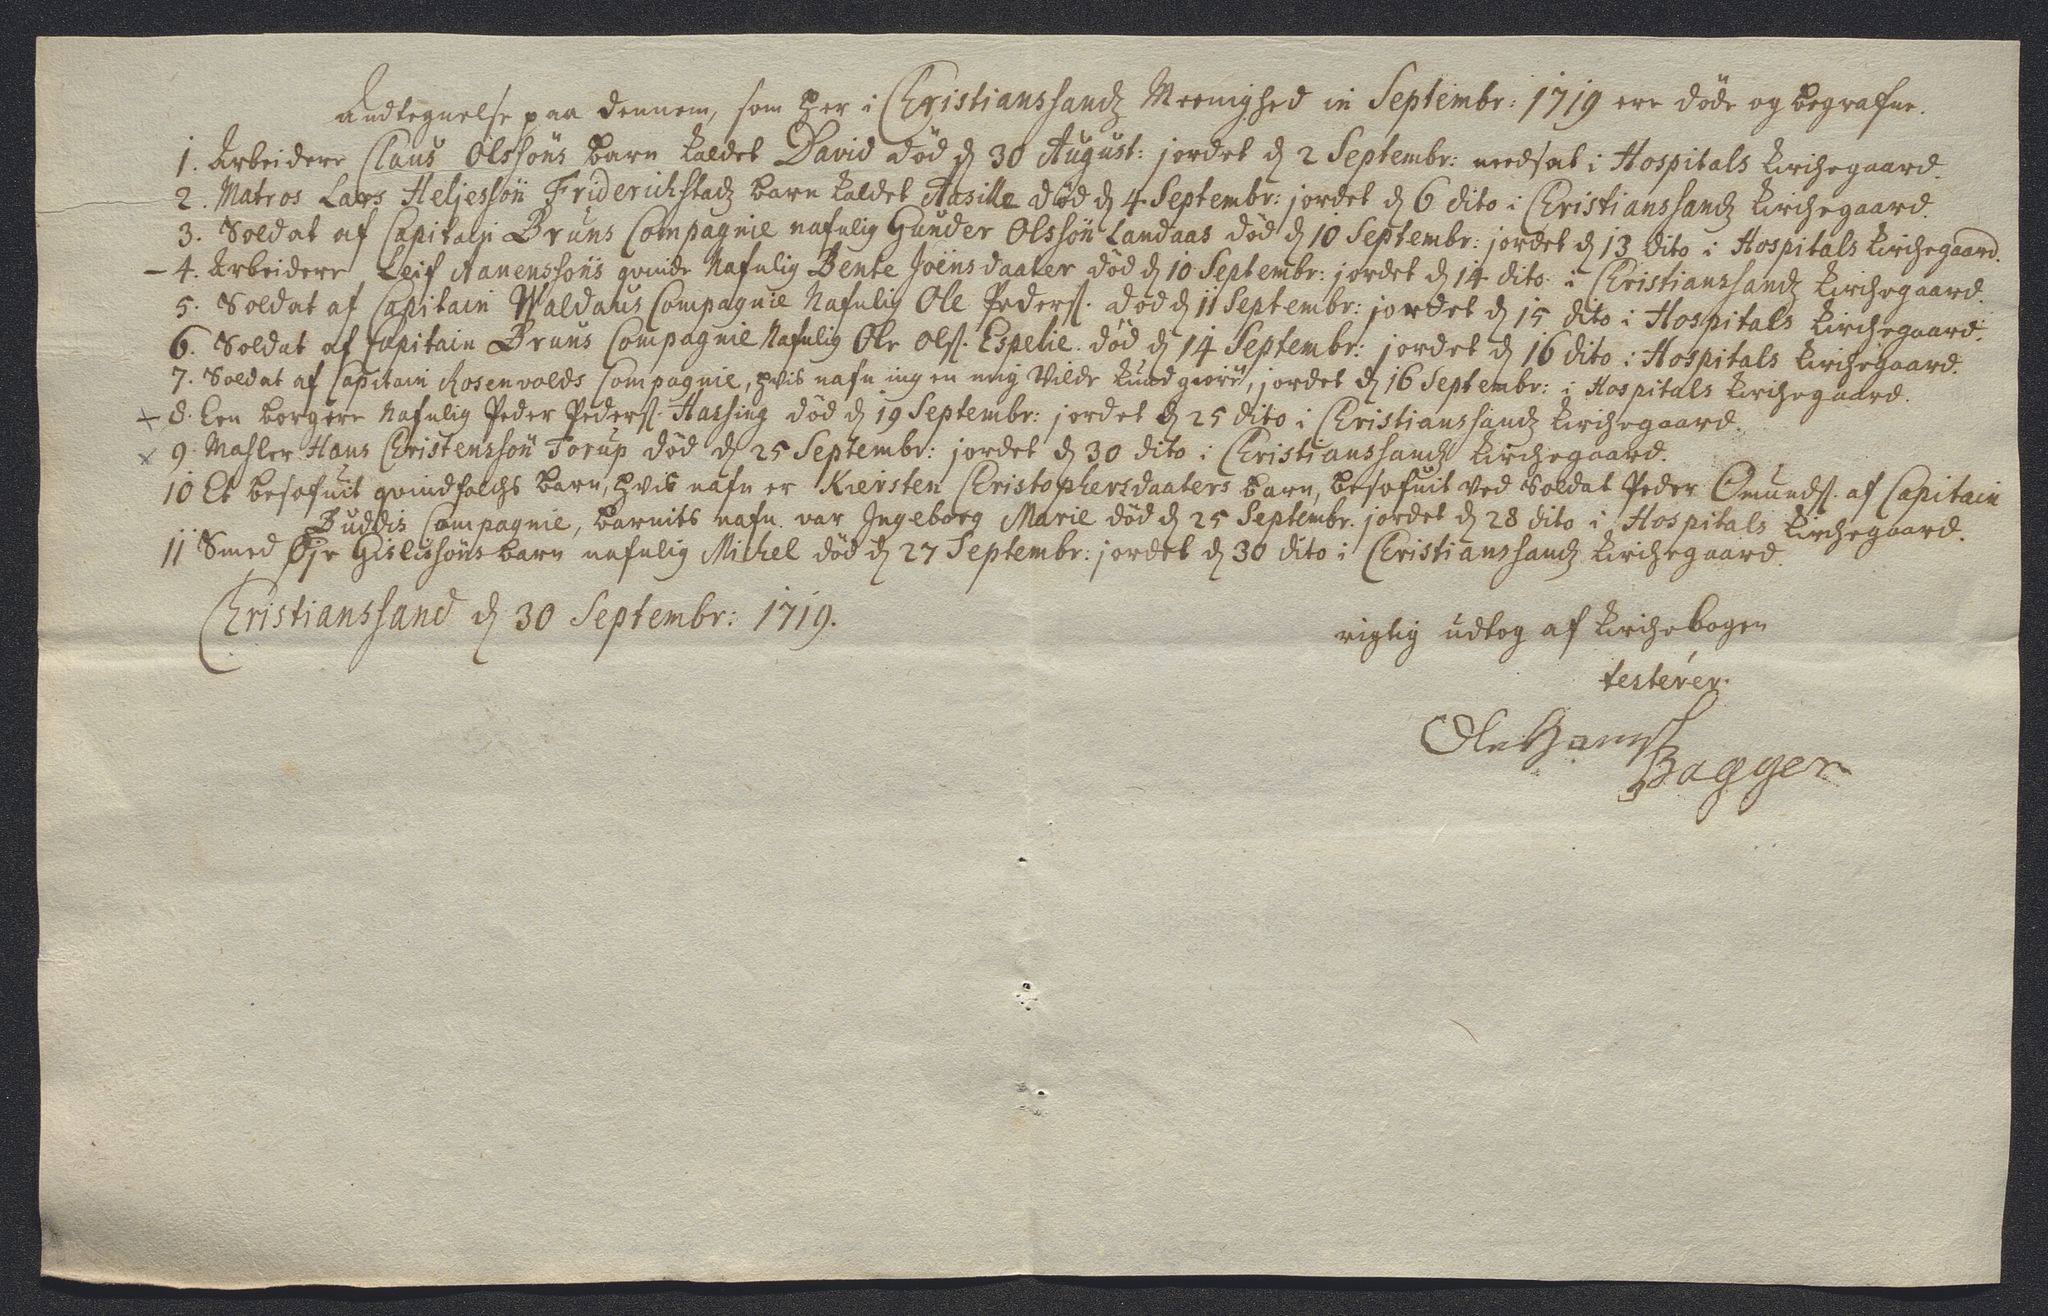 Andtegnelse paa dennem, som her i Christianssandz Meenighed in Septembr: 1719 ere døde og begrafne.
1. Arbeidere Claus Olssøns barn kaldet David død d 30 August: jordet d 2 Septembr: nedsat i Hospitals Kirchegaard.
2. Matros Lars Heljessøn Friderichstadz barn kaldet Aasille død d 4 Septembr: jordet d 6 dito i Christianssandz Kirchegaard.
3. Soldat af Capitain Bruns Compagnie nafnlig Gunder Olssøn Landaas død d 10 Septembr: jordet d 13 dito i Hospitals Kirchegaard.
- 4. Arbeidere Leif Aanenssøns qvinde Nafnlig Bente Joensdaater død d 10 Septembr: jordet d 14 dito i Christianssandz Kirchegaard.
5. Soldat af Capitain Waldaus Compagnie Nafnlig Ole Peders. død d 11 Septembr: jordet d 15 dito i Hospitals Kirchegaard.
6. Soldat af Capitain Bruns Compagnie Nafnlig Ole Ols. Espelie. død d 14 Septembr: jordet d 16 dito i Hospitals Kirchegaard.
7. Soldat af Capitain Rosenvolds Compagnie, hvis nafn ingen mig Vilde kundgiøre, jordet d 16 Septembr: i Hospitals Kirchegaard.
+ 8. Een borgere Nafnlig Peder Peders. Hassing død d 19 Septembr: jordet d 25 dito i Christianssandz Kirchegaard.
x 9. Mahler Hans Christenssøn Torup død d 25 Septembr: jordet d 30 dito i Christianssandz Kirchegaard.
10 Et besofuit qvindfolchs barn, hvis nafn er Kiersten Christophersdaaters barn, besofuit ved Soldat Peder Omunds. af Capitain
Buddis Compagnie, barnits nafn var Ingeborg Marie død d 25 Septembr. jordet d 28 dito i Hospitals Kirchegaard.
11 Smed Gislissøns barn nafnlig Michel død d 27 Septembr: jordet d 30 dito i Christianssandz Kirchegaard.
Christianssand d 30 Septembr: 1719.
rigtig udtog af Kirchebogen
testérer.
Ole Hans
Bagger